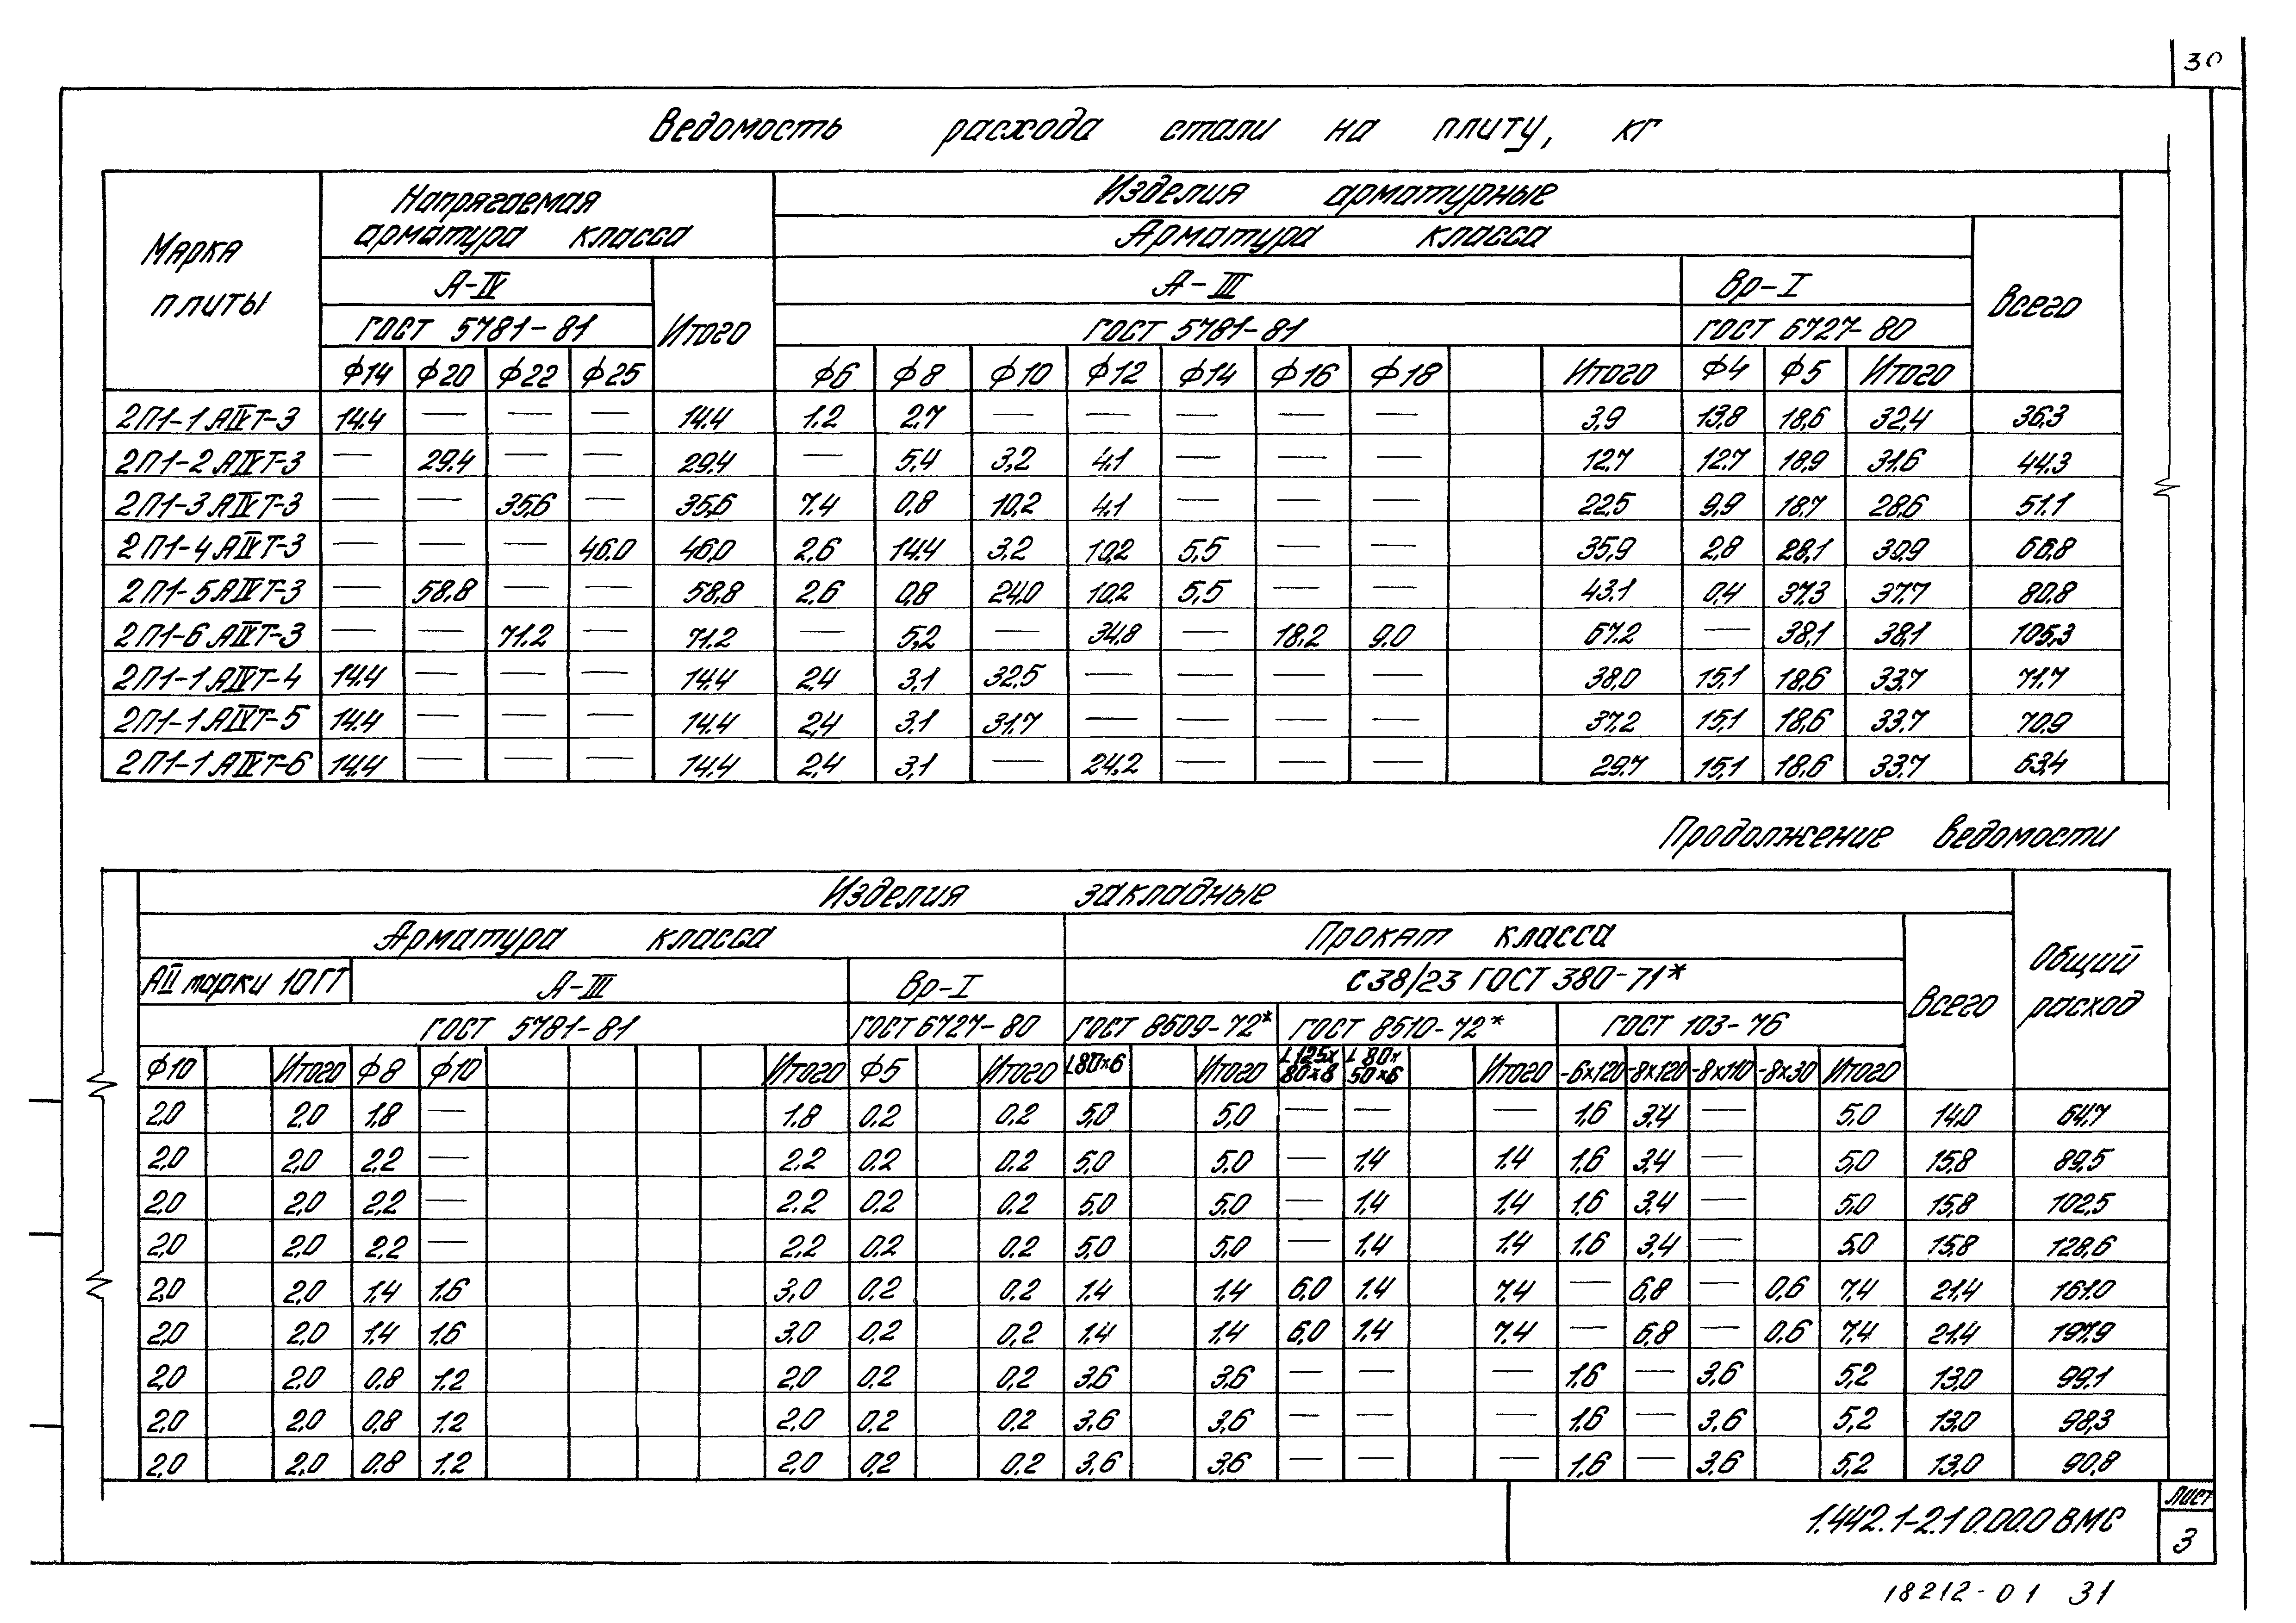 30
Ведомость расхода стали на плиту, кг
Марка плиты
Напрягаемая арматура класса
Изделия арматурные
Арматура класса
А-IV
Итого
А-III
Вр-I
Всего
ГОСТ 5781-81
ГОСТ 5781-81
ГОСТ 6727-80
ф14 ф20 ф22 ф25 ф6 ф8 ф10 ф12 ф14 ф16 ф18 Итого ф4 ф5 Итого
2П1-1АIVТ-3 14.4 — — — 14.4 1.2 2.7 — — — — — 3,9 13,8 18,6 32,4 36,3
2П1-2АIVТ-3 — 29.4 — — 29.4 — 5,4 3,2 4,1 — — — 12,7 12,7 18,9 31,6 44,3
2П1-3АIVТ-3 — — 35,6 — 35,6 7.4 0,8 10,2 4,1 — — — 22,5 9,9 18,7 28,6 51.1
2П1-4АIVТ-3 — — — 46.0 46,0 2,6 14.4 3,2 10,2 5,5 — — 35,9 2,8 28,1 30,9 66,8
2П1-5АIVТ-3 — 58,8 — — 58,8 2,6 0,8 24,0 10,2 5,5 — — 43.1 0,4 37,3 37,7 80,8
2П1-6АIVТ-3 — — 71.2 — 71.2 — 5,2 — 34,8 — 18,2 9.0 67.2 — 38,1 38,1 105,3
2П1-1АIVТ-4 14.4 — — — 14.4 2,4 3,1 32,5 — — — — 38,0 15,1 18,6 33,7 71.7
2П1-1АIVТ-5 14.4 — — — 14.4 2,4 3,1 31,7 — — — — 37,2 15,1 18,6 33,7 70,9
2П1-1АIVТ-6 14.4 — — — 14.4 2,4 3,1 — 24,2 — — — 29,7 15,1 18,6 33,7 63,4
Продолжение ведомости
Изделия закладные
Общий расход
Арматура класса
Прокат класса
Всего
АII марки 10ГТ
А-III
Вр-I
С38/23 ГОСТ 380-71*
ГОСТ 5781-81
ГОСТ 6727-80
ГОСТ 8509-72*
ГОСТ 8510-72*
ГОСТ 103-76
ф10 Итого ф8 ф10 Итого ф5 Итого L80×6 Итого L125×80×8 L80×50×6 Итого -6×120 -8×120 -8×110 -8×30 Итого
2,0 2,0 1,8 — 1.8 0.2 0.2 5,0 5,0 — — — 1,6 3,4 — 5,0 14,0 64,7
2,0 2,0 2,2 — 2,2 0.2 0.2 5,0 5,0 — 1.4 1.4 1.6 3,4 — 5,0 15,8 89,5
2,0 2,0 2,2 — 2,2 0,2 0,2 5,0 5,0 — 1.4 1.4 1.6 3,4 — 5,0 15,8 102,5
2,0 2,0 2,2 — 2,2 0,2 0,2 5,0 5,0 — 1.4 1.4 1.6 3,4 — 5,0 15,8 128,6
2,0 2,0 1.4 1.6 3,0 0,2 0,2 1.4 1.4 6,0 1.4 7,4 — 6,8 — 0,6 7,4 21,4 161.0
2,0 2,0 1.4 1.6 3,0 0,2 0,2 1.4 1.4 6,0 1.4 7,4 — 6,8 — 0,6 7,4 21,4 197,9
2,0 2,0 0,8 1.2 2,0 0,2 0,2 3,6 3,6 — — — 1,6 — 3,6 5,2 13,0 99,1
2,0 2,0 0,8 1.2 2,0 0,2 0,2 3,6 3,6 — — — 1,6 — 3,6 5,2 13,0 98,3
2,0 2,0 0,8 1.2 2,0 0,2 0,2 3,6 3,6 — — — 1,6 — 3,6 5,2 13,0 90,8
1.442.1-2.1 0.00.0 ВМС
Лист
3
18212-01 31